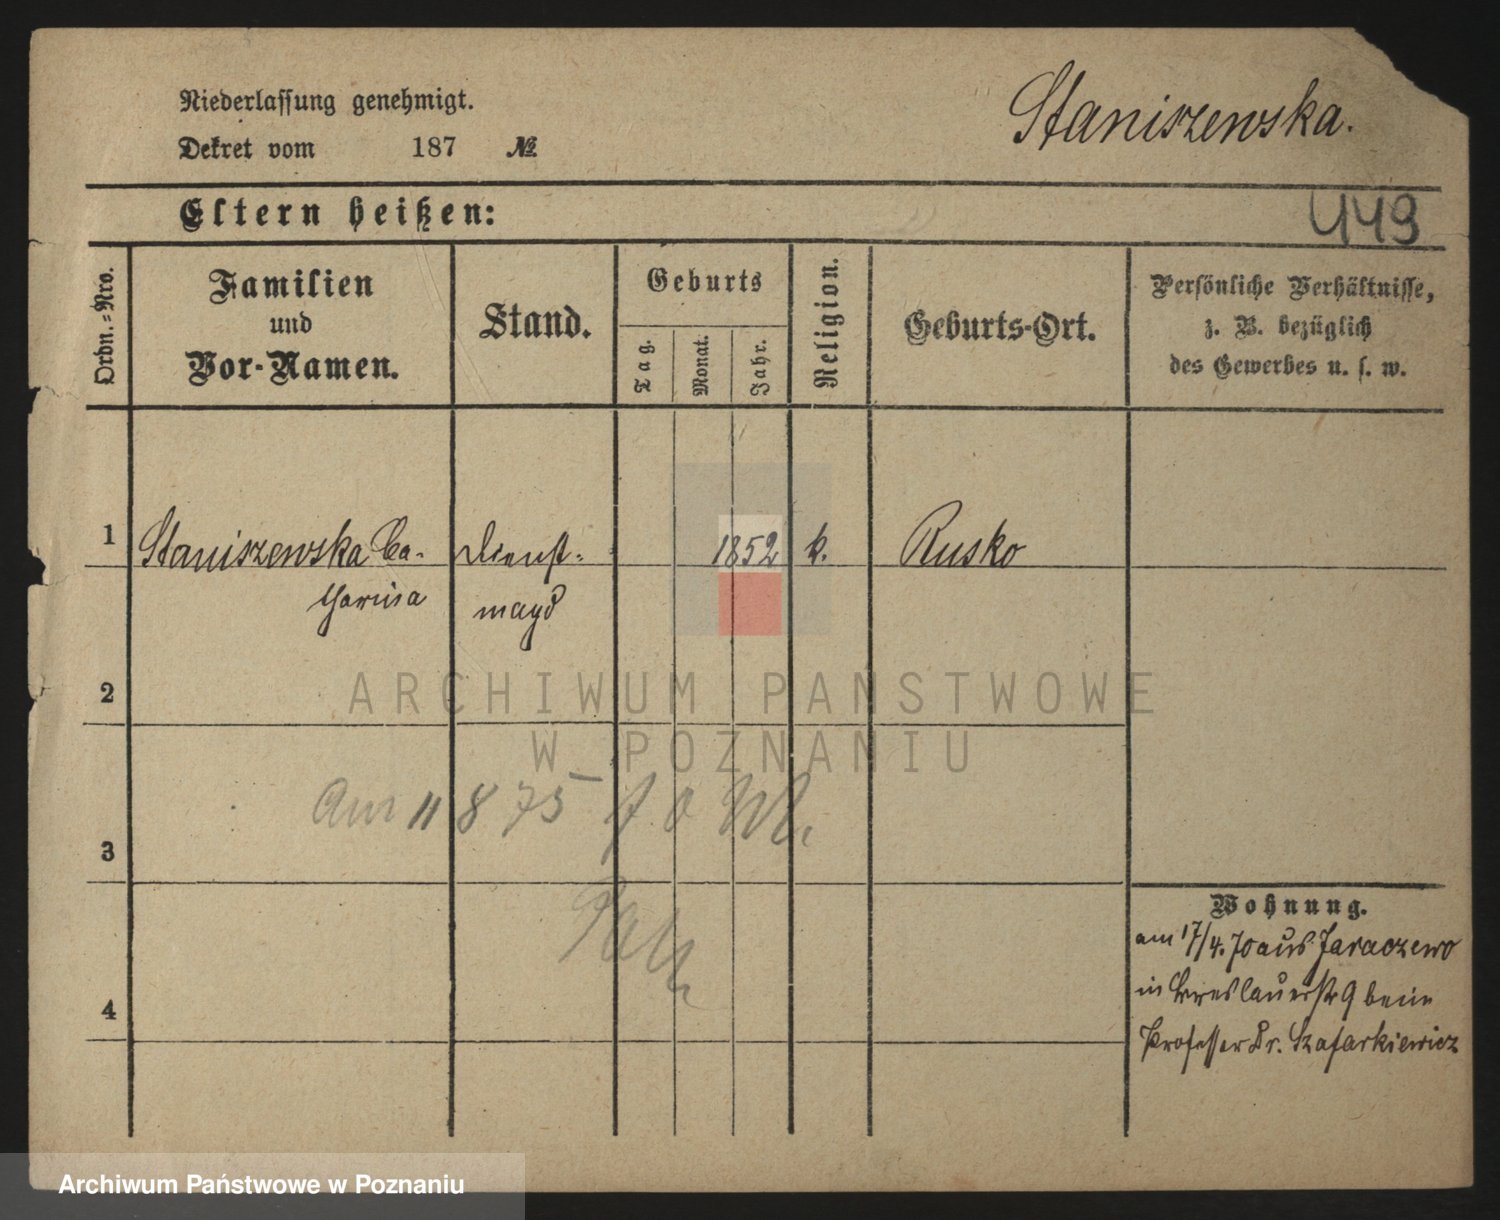 Niederlassung genehmigt.
Dekret vom 187 №
Staniszewska.
Eltern heißen:
449
Ordn.-Nro.
Familien
und
Vor-Namen.
Stand.
Geburts
Tag.
Monat.
Jahr.
Religion.
Geburts-Ort.
Persönliche Verhältnisse,
z. B. bezüglich
des Gewerbes u. s. w.
1 Staniszewska Ca- Dienst- 1852 k. Rusko
tharina magd
2
ARCHIWUM PAŃSTWOWE
W POZNANIU
Am 11 8 75
3
Wohnung.
am 17/4. 70 aus Jaraczewo
in Breslauerstr 9 beim
4
Professor Dr. Szafarkiewicz
Archiwum Państwowe w Poznaniu